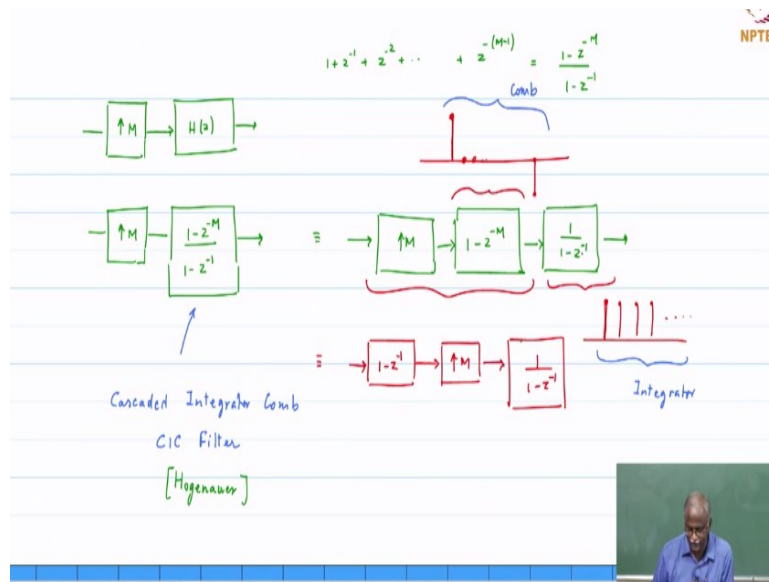 NPTE
1 + z⁻¹ + z⁻² + ·· + z^{-(M-1)} = \frac{1-z^{-M}}{1-z^{-1}}
Comb
↑M H(z)
↑M \frac{1-z^{-M}}{1-z^{-1}} ≡ ↑M 1-z^{-M} \frac{1}{1-z^{-1}}
≡ 1-z^{-1} ↑M \frac{1}{1-z^{-1}}
Integrator
Cascaded Integrator Comb
CIC Filter
[Hogenauer]